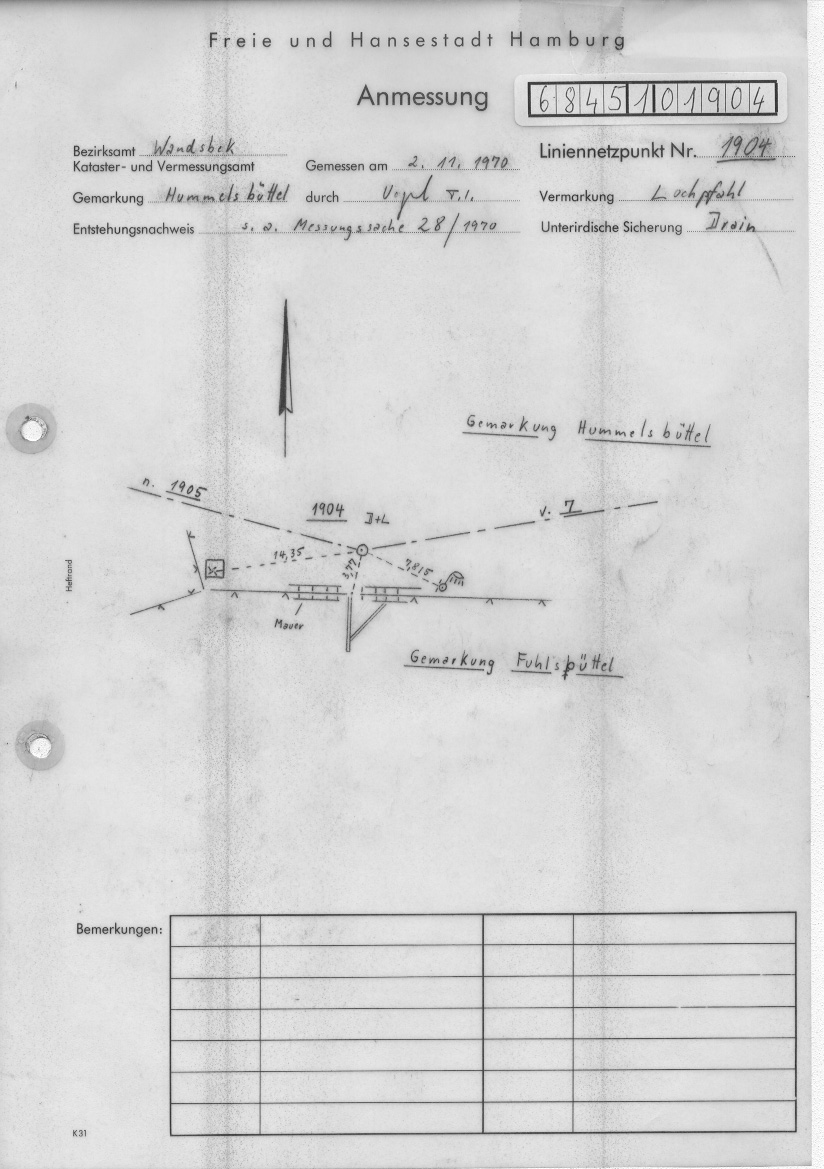 Freie und Hansestadt Hamburg
Anmessung 6845101904
Bezirksamt Wandsbek
Kataster- und Vermessungsamt Gemessen am 2. 11. 1970 Liniennetzpunkt Nr. 1904
Gemarkung Hummelsbüttel durch T.I. Vermarkung Lochpfahl
Entstehungsnachweis s. a. Messungssache 28/1970 Unterirdische Sicherung Drain
Gemarkung Hummelsbüttel
n. 1905
1904 D+L
v. 7
14,35
3,77
7,815
Mauer
Heftrand
Gemarkung Fuhlsbüttel
Bemerkungen:
K31